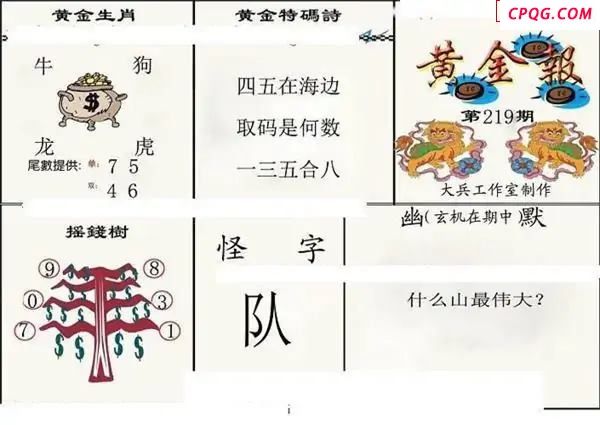 CPQG.COM
黄金生肖
牛 狗
$
龙 虎
尾數提供: 单: 7 5
双: 4 6
黄金特碼詩
四五在海边
取码是何数
一三五合八
黄金報
第219期
大兵工作室制作
摇錢樹
9 8
0 3
7 1
$ $ $ $ $ $ $ $ $ $
怪 字
队
幽(玄机在期中)默
什么山最伟大?